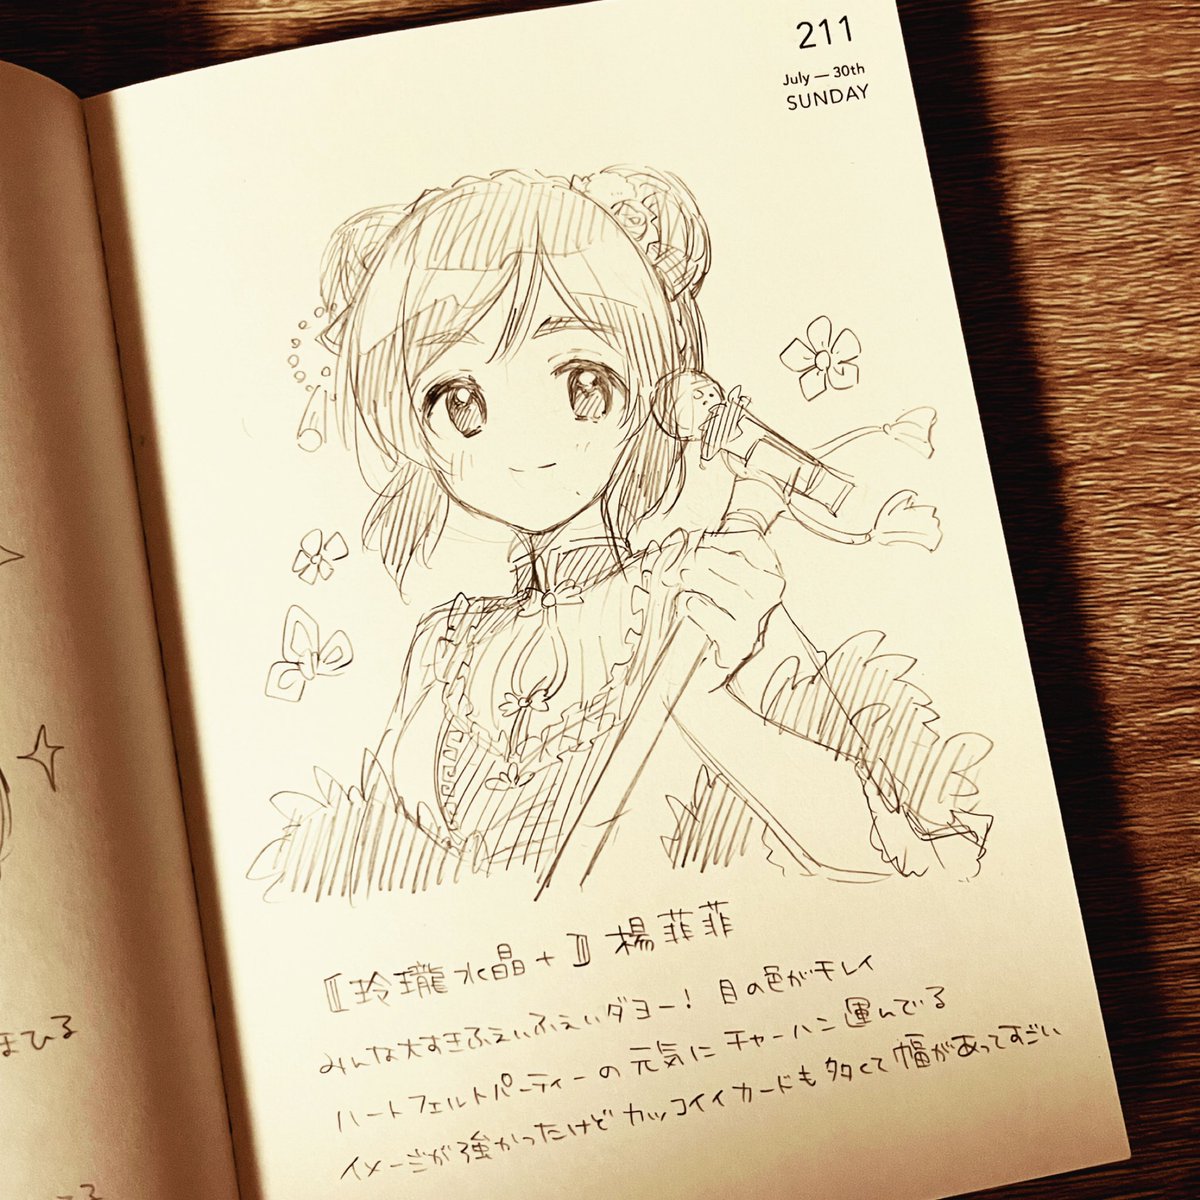 211
July — 30th
SUNDAY
まひる
【玲瓏水晶+】楊菲菲
みんな大すきふぇいふぇいダヨー! 目の色がキレイ
ハートフェルトパーティーの元気にチャーハン運んでる
イメージが強かったけどカッコイイカードも多くて幅があってすごい